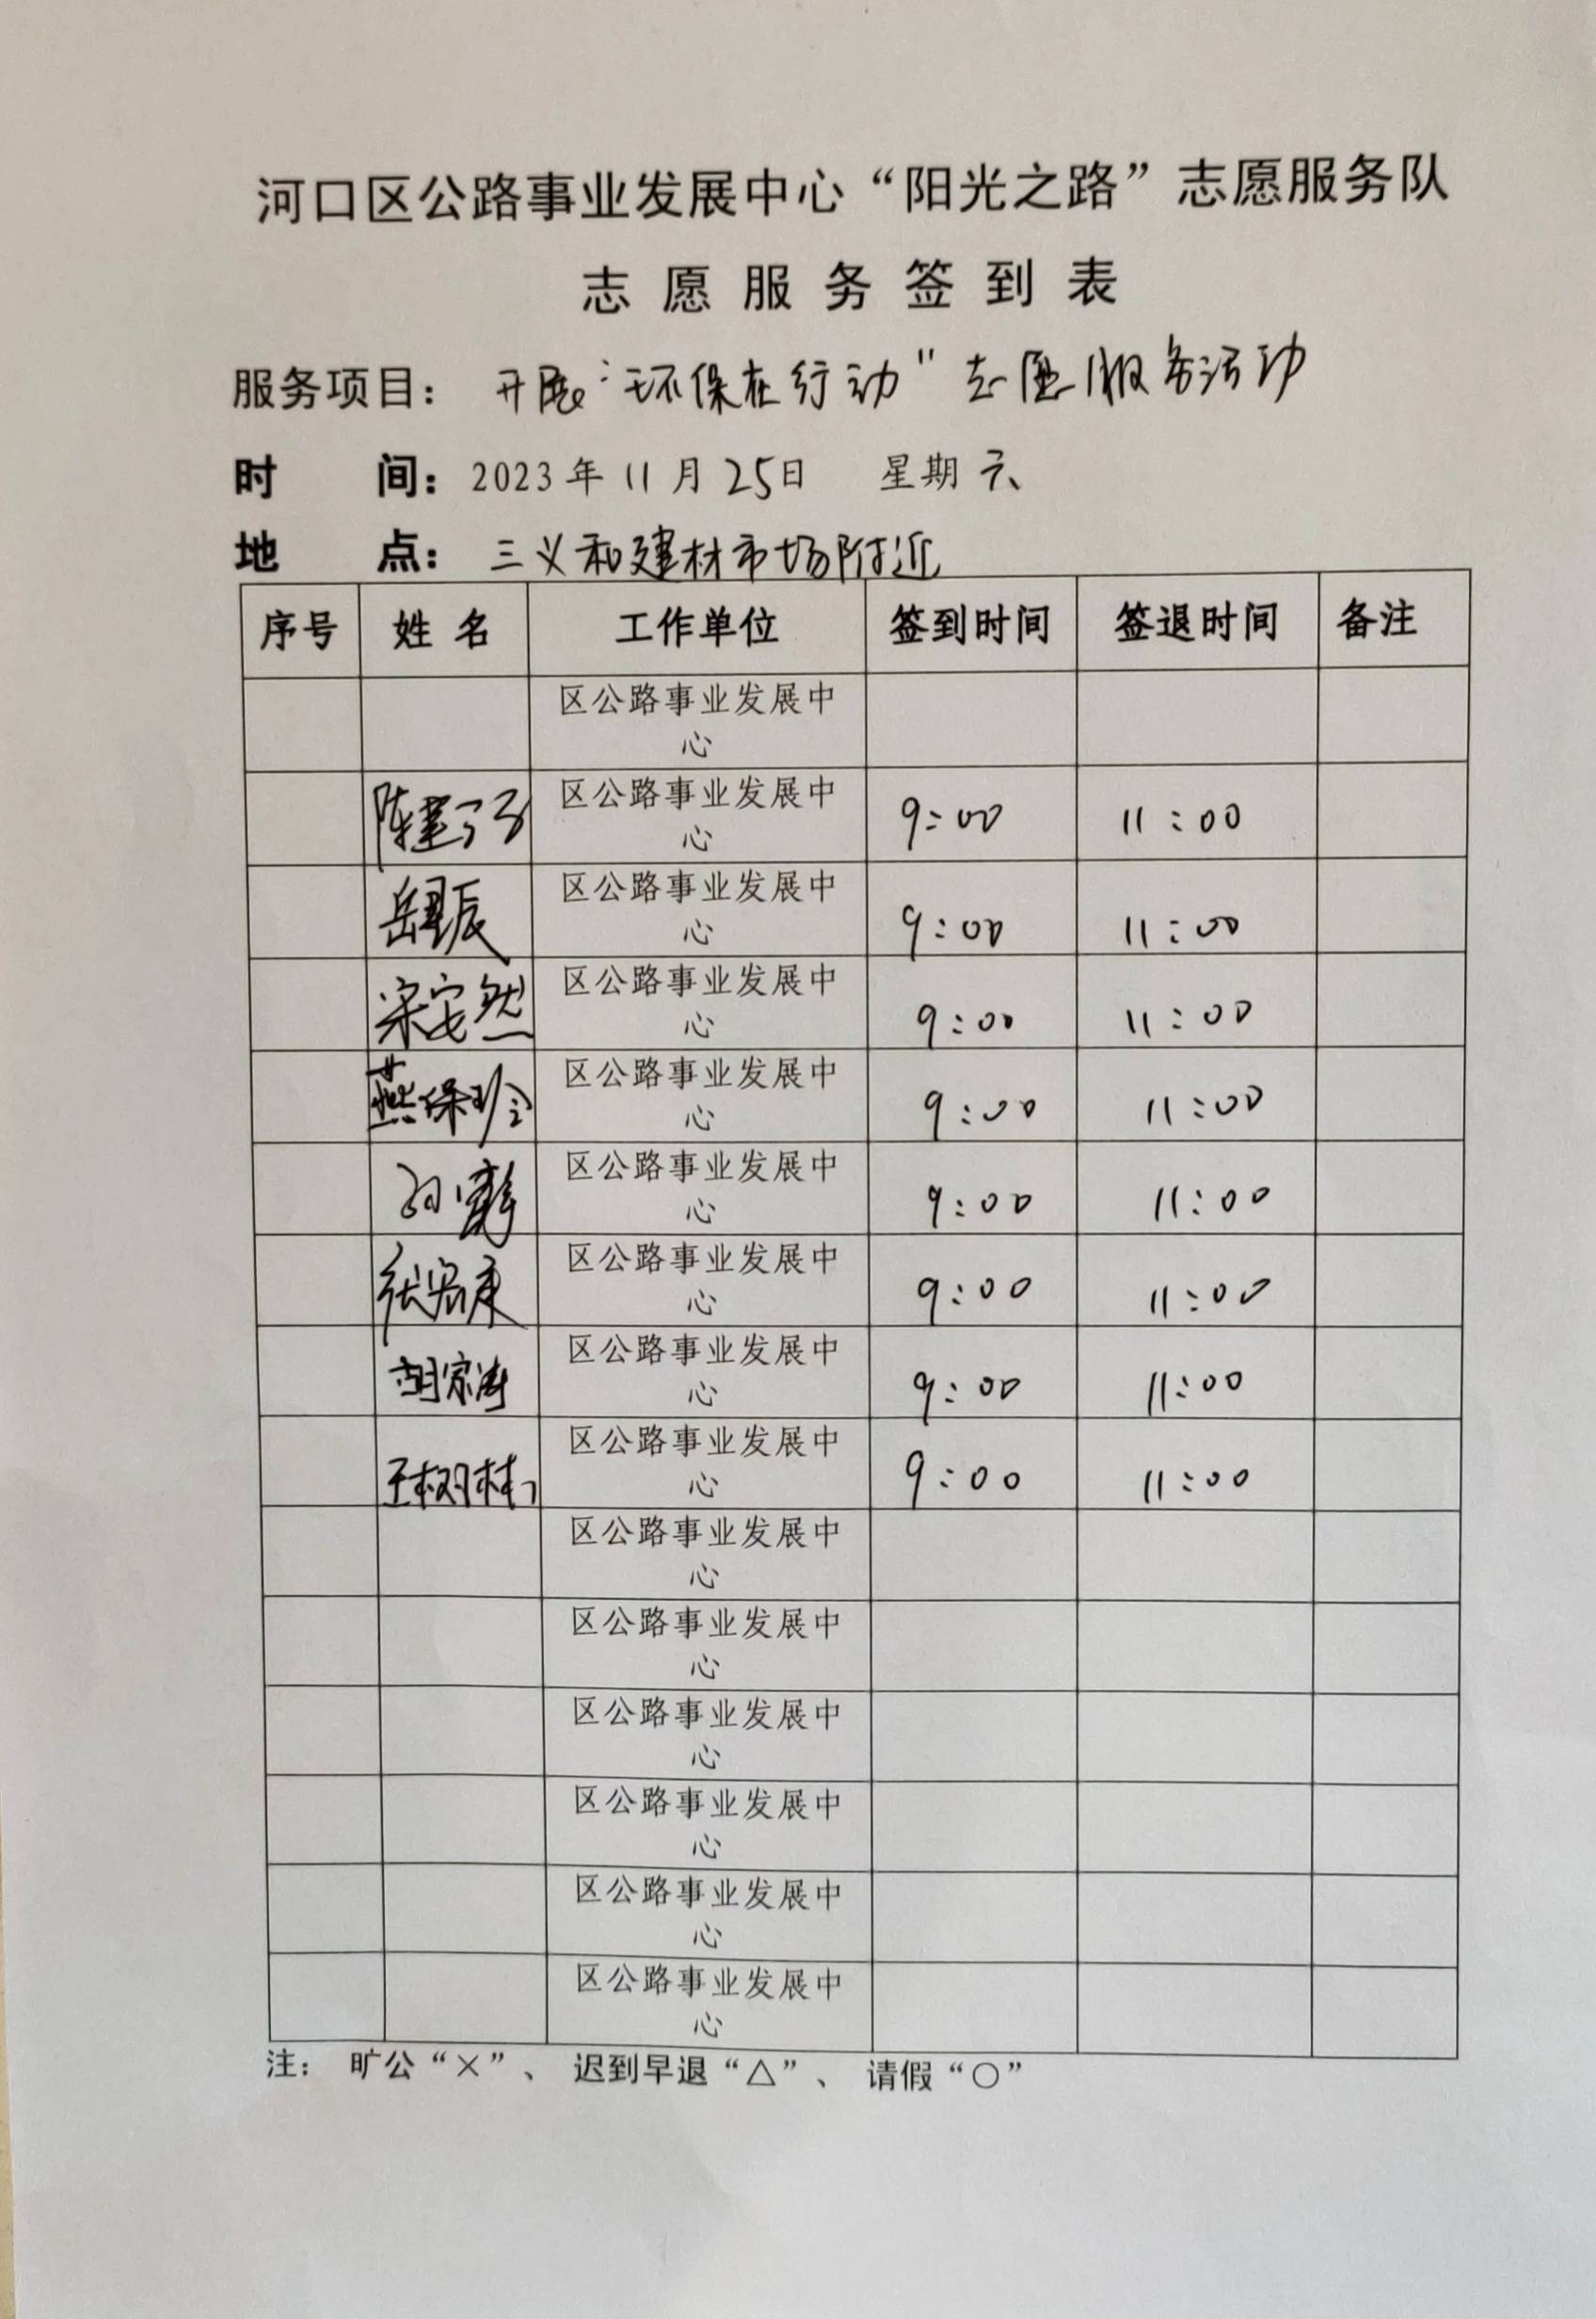 河口区公路事业发展中心“阳光之路”志愿服务队
志愿服务签到表
服务项目： 开展“环保在行动”志愿服务活动
时 间：2023年11月25日 星期六
地 点： 三义和建材市场附近
序号 姓名 工作单位 签到时间 签退时间 备注
区公路事业发展中
心
区公路事业发展中
心 9:00 11:00
区公路事业发展中
岳 辰 心 9:00 11:00
区公路事业发展中
宋安然 心 9:00 11:00
区公路事业发展中
燕保玲 心 9:00 11:00
区公路事业发展中
孙 心 9:00 11:00
区公路事业发展中
张 康 心 9:00 11:00
区公路事业发展中
胡家涛 心 9:00 11:00
区公路事业发展中
王树林 心 9:00 11:00
区公路事业发展中
心
区公路事业发展中
心
区公路事业发展中
心
区公路事业发展中
心
区公路事业发展中
心
区公路事业发展中
心
注： 旷公“×”、 迟到早退“△”、 请假“○”